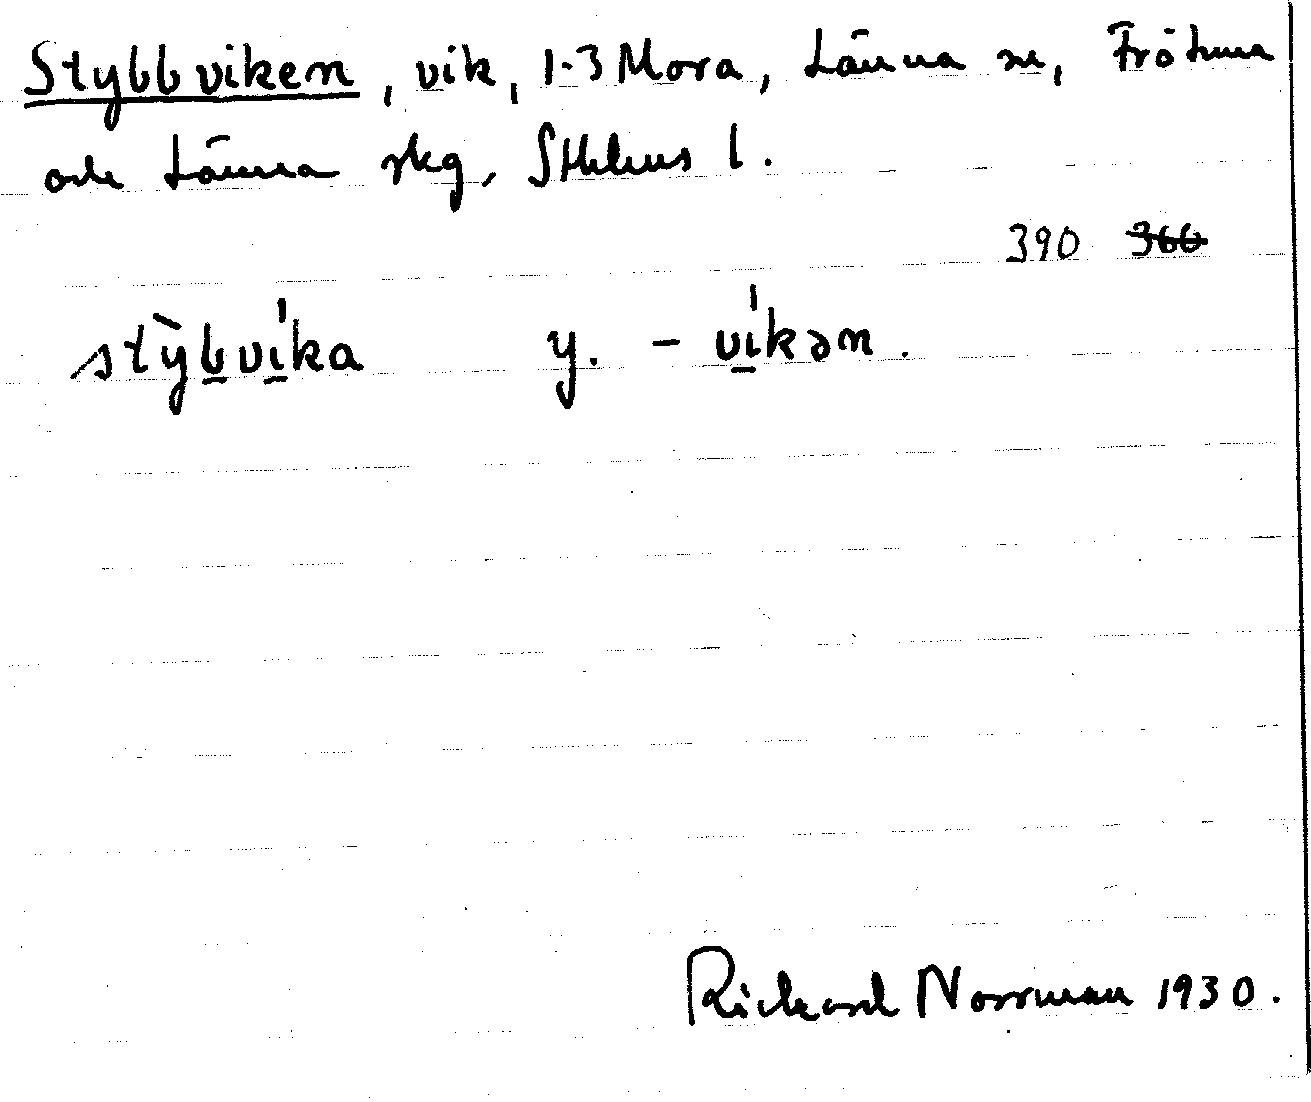 Stybbviken, vik, 1-3 Mora, Länna sn, Frötuna
och Länna skg, Sthlms l.
390 366
stỳb̲ví̲ka y. - ví̲kən.
Rickard Norrman 1930.